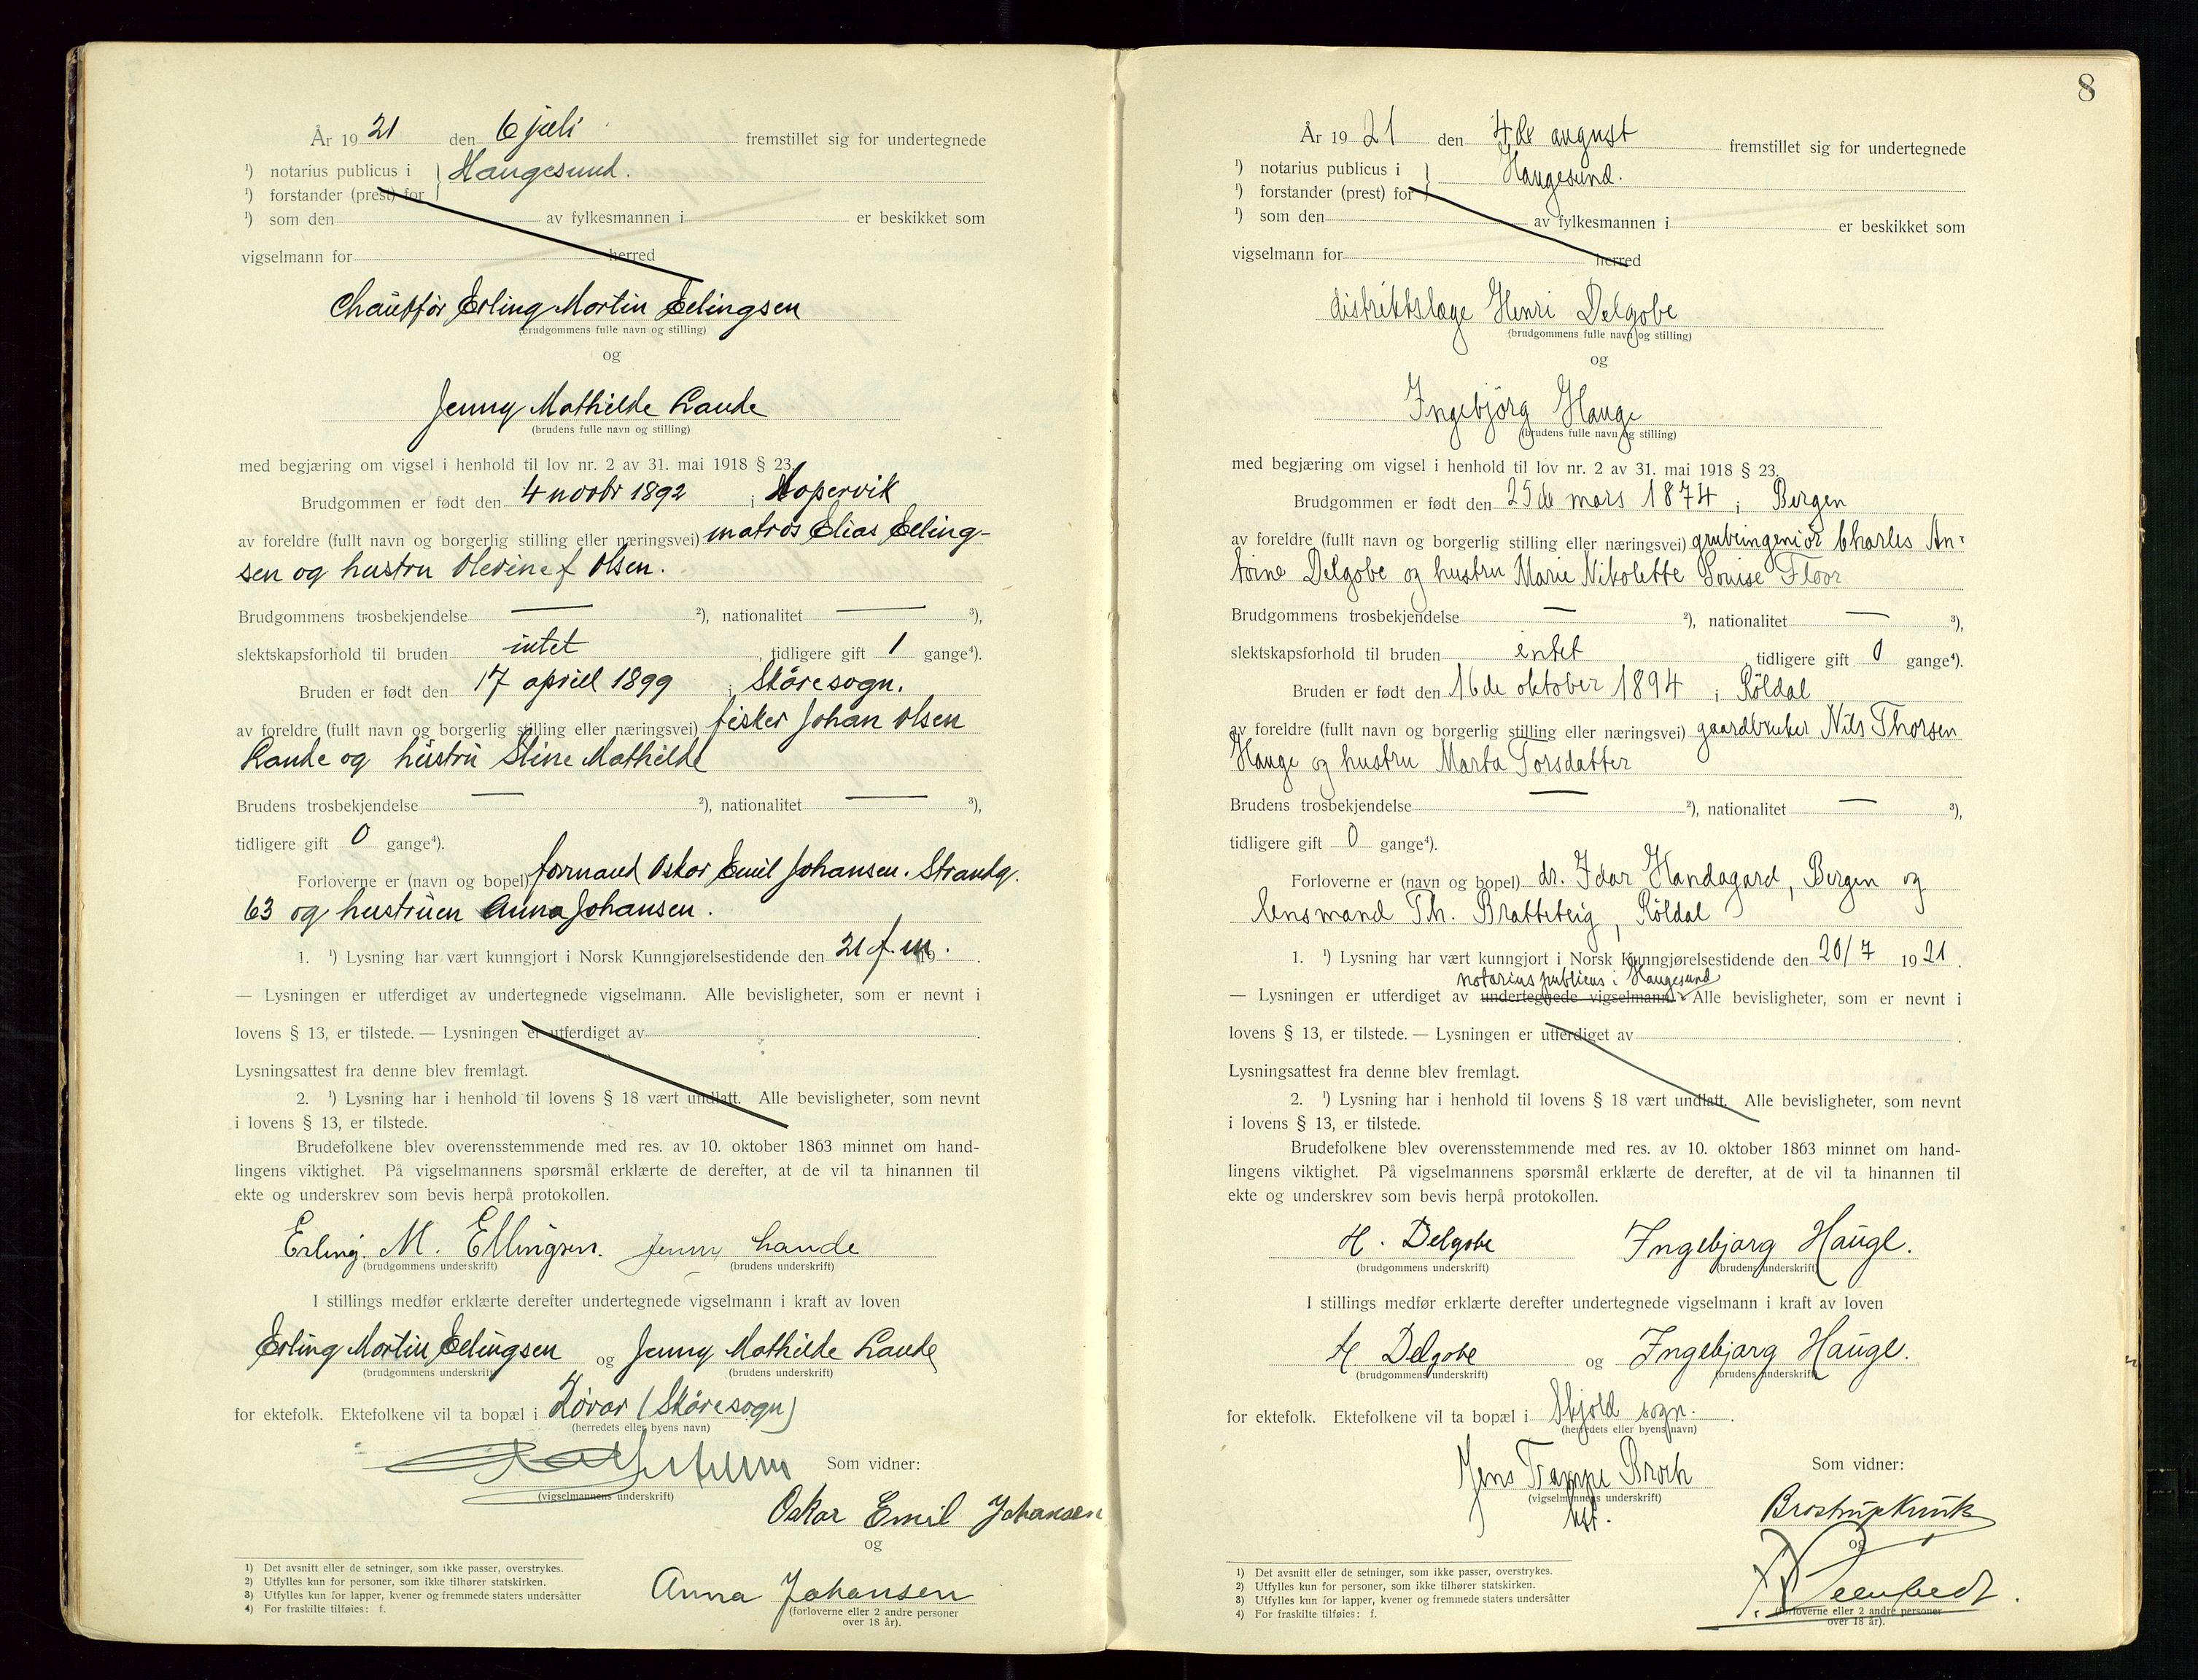 År 1921 den 6 juli fremstillet sig for undertegnede
¹) notarius publicus i } Haugesund.
¹) forstander (prest) for
¹) som den av fylkesmannen i er beskikket som
vigselmann for herred
Chauffør Erling Martin Ellingsen
(brudgommens fulle navn og stilling)
og
Jenny Mathilde Lande
(brudens fulle navn og stilling)
med begjæring om vigsel i henhold til lov nr. 2 av 31. mai 1918 § 23.
Brudgommen er født den 4 novbr 1892 i Kopervik
av foreldre (fullt navn og borgerlig stilling eller næringsvei) matros Elias Elling-
sen og hustru Olevine f Olsen.
Brudgommens trosbekjendelse — ²), nationalitet — ³),
slektskapsforhold til bruden intet, tidligere gift 1 gange⁴).
Bruden er født den 17 april 1899 i Skåresogn.
av foreldre (fullt navn og borgerlig stilling eller næringsvei) fisker Johan Olsen
Lande og hustru Stine Mathilde
Brudens trosbekjendelse — ²), nationalitet — ³),
tidligere gift 0 gange⁴).
Forloverne er (navn og bopel) formand Oskar Emil Johansen. Strandg.
63 og hustruen Anna Johansen.
1. ¹) Lysning har vært kunngjort i Norsk Kunngjørelsestidende den 21 f. m. 19 .
— Lysningen er utferdiget av undertegnede vigselmann. Alle bevisligheter, som er nevnt i
lovens § 13, er tilstede. — Lysningen er utferdiget av .
Lysningsattest fra denne blev fremlagt.
2. ¹) Lysning har i henhold til lovens § 18 vært undlatt. Alle bevisligheter, som nevnt
i lovens § 13, er tilstede.
Brudefolkene blev overensstemmende med res. av 10. oktober 1863 minnet om hand-
lingens viktighet. På vigselmannens spørsmål erklærte de derefter, at de vil ta hinannen til
ekte og underskrev som bevis herpå protokollen.
Erling. M. Ellingsen. Jenny Lande
(brudgommens underskrift) (brudens underskrift)
I stillings medfør erklærte derefter undertegnede vigselmann i kraft av loven
Erling Martin Ellingsen og Jenny Mathilde Lande
(brudgommens underskrift) (brudens underskrift)
for ektefolk. Ektefolkene vil ta bopæl i Røvær (Skåresogn)
(herredets eller byens navn)
Som vidner:
(vigselmannens underskrift)
Oskar Emil Johansen
og
Anna Johansen
(forloverne eller 2 andre personer
over 18 år).
1) Det avsnitt eller de setninger, som ikke passer, overstrykes.
2) Utfylles kun for personer, som ikke tilhører statskirken.
3) Utfylles kun for lapper, kvener og fremmede staters undersåtter
4) For fraskilte tilføies: f.
8
År 1921 den 4de august fremstillet sig for undertegnede
¹) notarius publicus i } Haugesund.
¹) forstander (prest) for
¹) som den av fylkesmannen i er beskikket som
vigselmann for herred
distriktslæge Henri Delgobe
(brudgommens fulle navn og stilling)
og
Ingebjörg Hauge
(brudens fulle navn og stilling)
med begjæring om vigsel i henhold til lov nr. 2 av 31. mai 1918 § 23.
Brudgommen er født den 25de mars 1874 i Bergen
av foreldre (fullt navn og borgerlig stilling eller næringsvei) grubeingeniör Charles An-
toine Delgobe og hustru Marie Nikolette Louise Floor
Brudgommens trosbekjendelse — ²), nationalitet — ³),
slektskapsforhold til bruden intet tidligere gift 0 gange⁴).
Bruden er født den 16de oktober 1894 i Röldal
av foreldre (fullt navn og borgerlig stilling eller næringsvei) gaardbruker Nils Thorsen
Hauge og hustru Marta Torsdatter
Brudens trosbekjendelse — ²), nationalitet — ³),
tidligere gift 0 gange⁴).
Forloverne er (navn og bopel) dr. Idar Handagard, Bergen og
lensmand Th. Bratteteig, Röldal
1. ¹) Lysning har vært kunngjort i Norsk Kunngjørelsestidende den 20/7 1921.
notarius publicus i Haugesund
— Lysningen er utferdiget av undertegnede vigselmann. Alle bevisligheter, som er nevnt i
lovens § 13, er tilstede. — Lysningen er utferdiget av .
Lysningsattest fra denne blev fremlagt.
2. ¹) Lysning har i henhold til lovens § 18 vært undlatt. Alle bevisligheter, som nevnt
i lovens § 13, er tilstede.
Brudefolkene blev overensstemmende med res. av 10. oktober 1863 minnet om hand-
lingens viktighet. På vigselmannens spørsmål erklærte de derefter, at de vil ta hinannen til
ekte og underskrev som bevis herpå protokollen.
H. Delgobe Ingebjørg Hauge.
(brudgommens underskrift) (brudens underskrift)
I stillings medfør erklærte derefter undertegnede vigselmann i kraft av loven
H Delgobe og Ingebjørg Hauge.
(brudgommens underskrift) (brudens underskrift)
for ektefolk. Ektefolkene vil ta bopæl i Skjold sogn.
(herredets eller byens navn)
Jens Trampe Broch Som vidner:
(vigselmannens underskrift)
kst.
og
(forloverne eller 2 andre personer
over 18 år).
1) Det avsnitt eller de setninger, som ikke passer, overstrykes.
2) Utfylles kun for personer, som ikke tilhører statskirken.
3) Utfylles kun for lapper, kvener og fremmede staters undersåtter
4) For fraskilte tilføies: f.